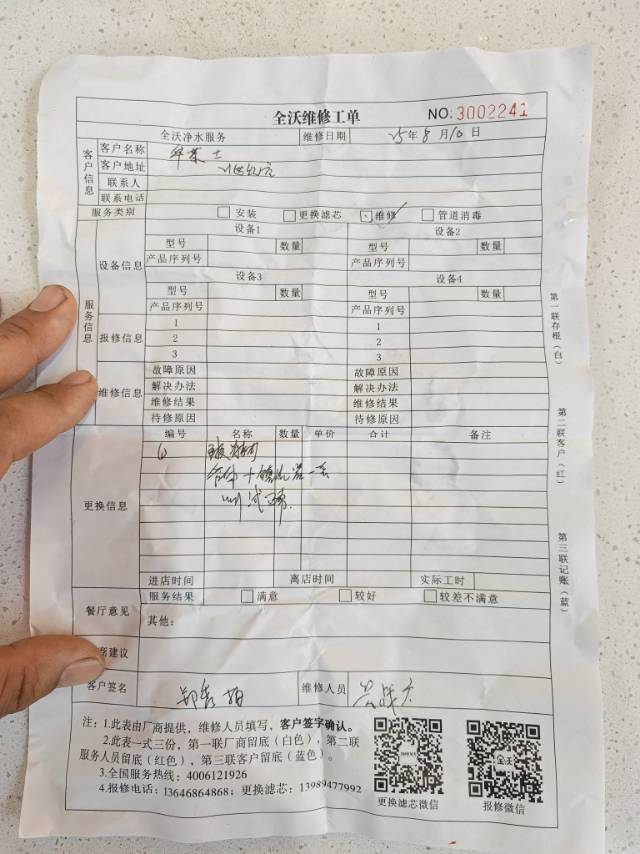 全沃维修工单 NO:3002241
全沃净水服务 维修日期 25年8月10日
客户信息
客户名称
客户地址
联系人
联系电话
服务类别 安装 更换滤芯 维修 管道消毒
服务信息
设备信息
设备1 设备2
型号 数量 型号 数量
产品序列号 产品序列号
设备3 设备4
型号 数量 型号 数量
产品序列号 产品序列号
报修信息
1 1
2 2
3 3
维修信息
故障原因 故障原因
解决办法 解决办法
维修结果 维修结果
待修原因 待修原因
更换信息
编号 名称 数量 单价 合计 备注
进店时间 离店时间 实际工时
餐厅意见
服务结果 满意 较好 较差不满意
其他:
建议
客户签名 维修人员
注: 1.此表由厂商提供，维修人员填写，客户签字确认。
2.此表一式三份，第一联厂商留底（白色），第二联
服务人员留底（红色），第三联客户留底（蓝色）。
3.全国服务热线: 4006121926
4.报修电话: 13646864868; 更换滤芯: 13989477992
更换滤芯微信 报修微信
第一联存根（白）
第二联客户（红）
第三联记账（蓝）